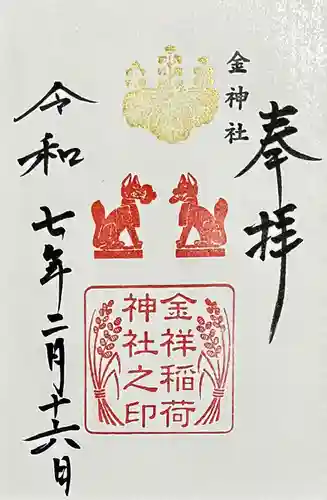 奉拝
金神社
金祥稲荷
神社之印
令和
七年二月十六日